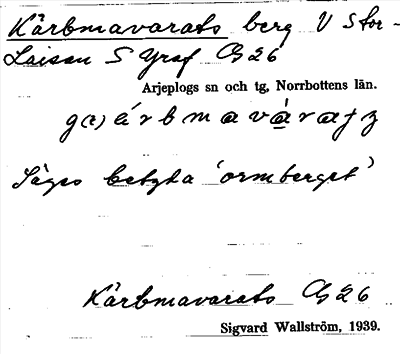 Kärbmavarats berg V Stor-
Laisan S Graf G 26
Arjeplogs sn och tg, Norrbottens län.
Säges betyda 'ormberget'
Kärbmavarats G 26
Sigvard Wallström, 1939.